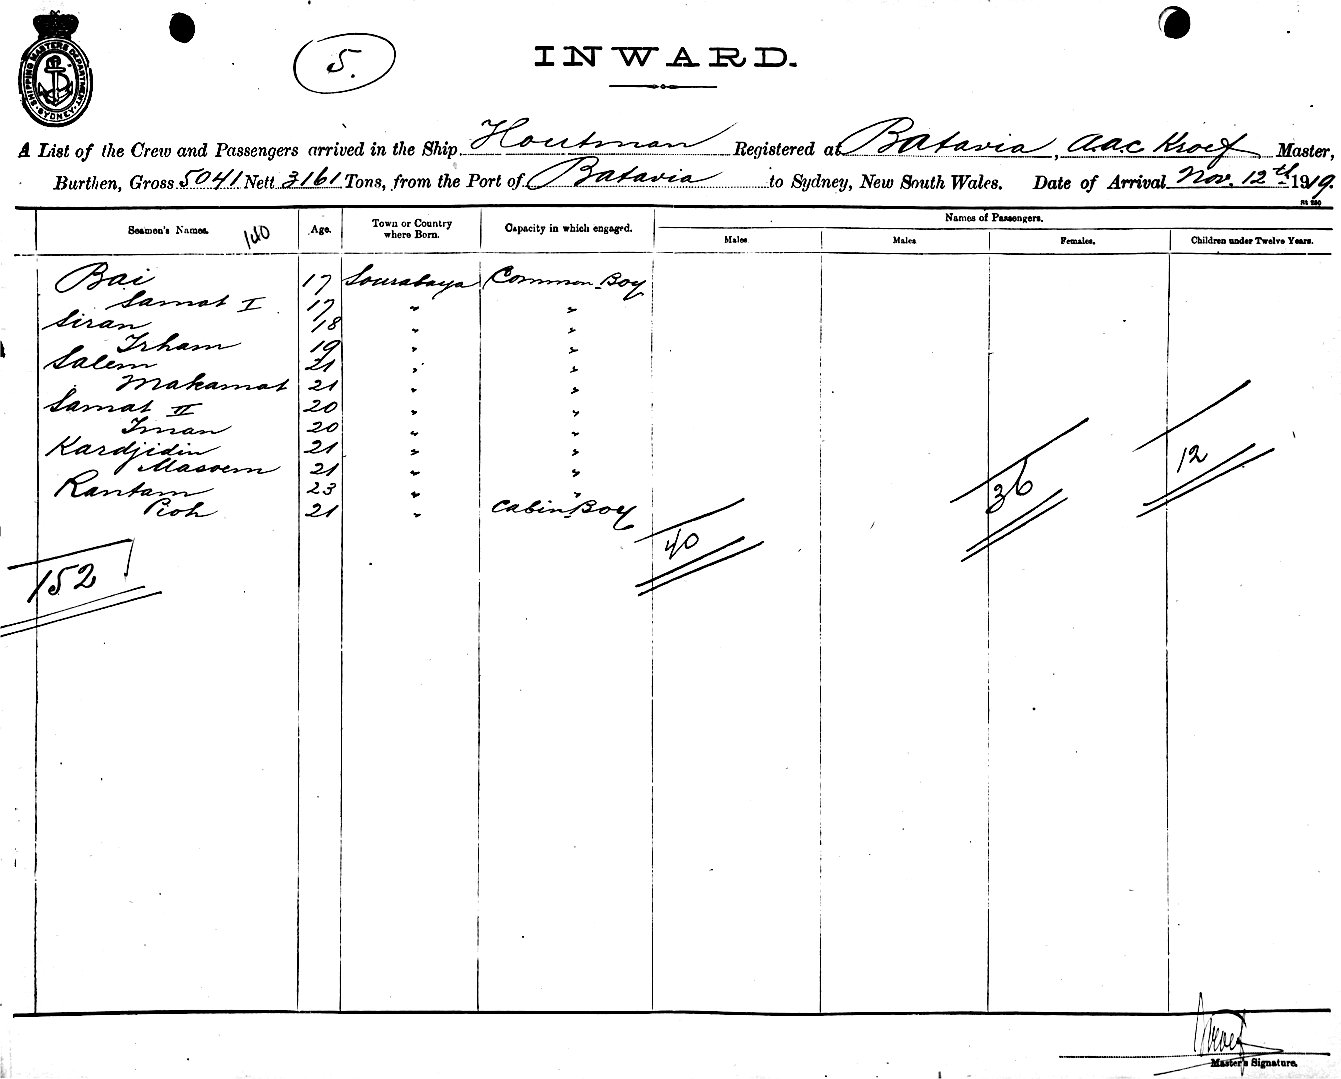 SHIPPING MASTERS DEPARTMENT
SYDNEY
5.
INWARD.
A List of the Crew and Passengers arrived in the Ship Houtman Registered at Batavia, A.A.C Kroef Master,
Burthen, Gross 5041 Nett 3161 Tons, from the Port of Batavia to Sydney, New South Wales. Date of Arrival Nov. 12th 1919.
Seamen's Names. 140 Age. Town or Country where Born. Capacity in which engaged. Names of Passengers.
Males Males Females. Children under Twelve Years.
Bai 17 Sourabaya Common Boy
Samat I 17 " "
Siran 18 " "
Irham 19 " "
Salem 21 " "
Makamat 21 " "
Samat II 20 " "
Iman 20 " "
Kardjidin 21 " "
Masoem 21 " "
Rantam 23 " "
Pioh 21 " Cabin Boy
152 40 36 12
Kroef
Master's Signature.